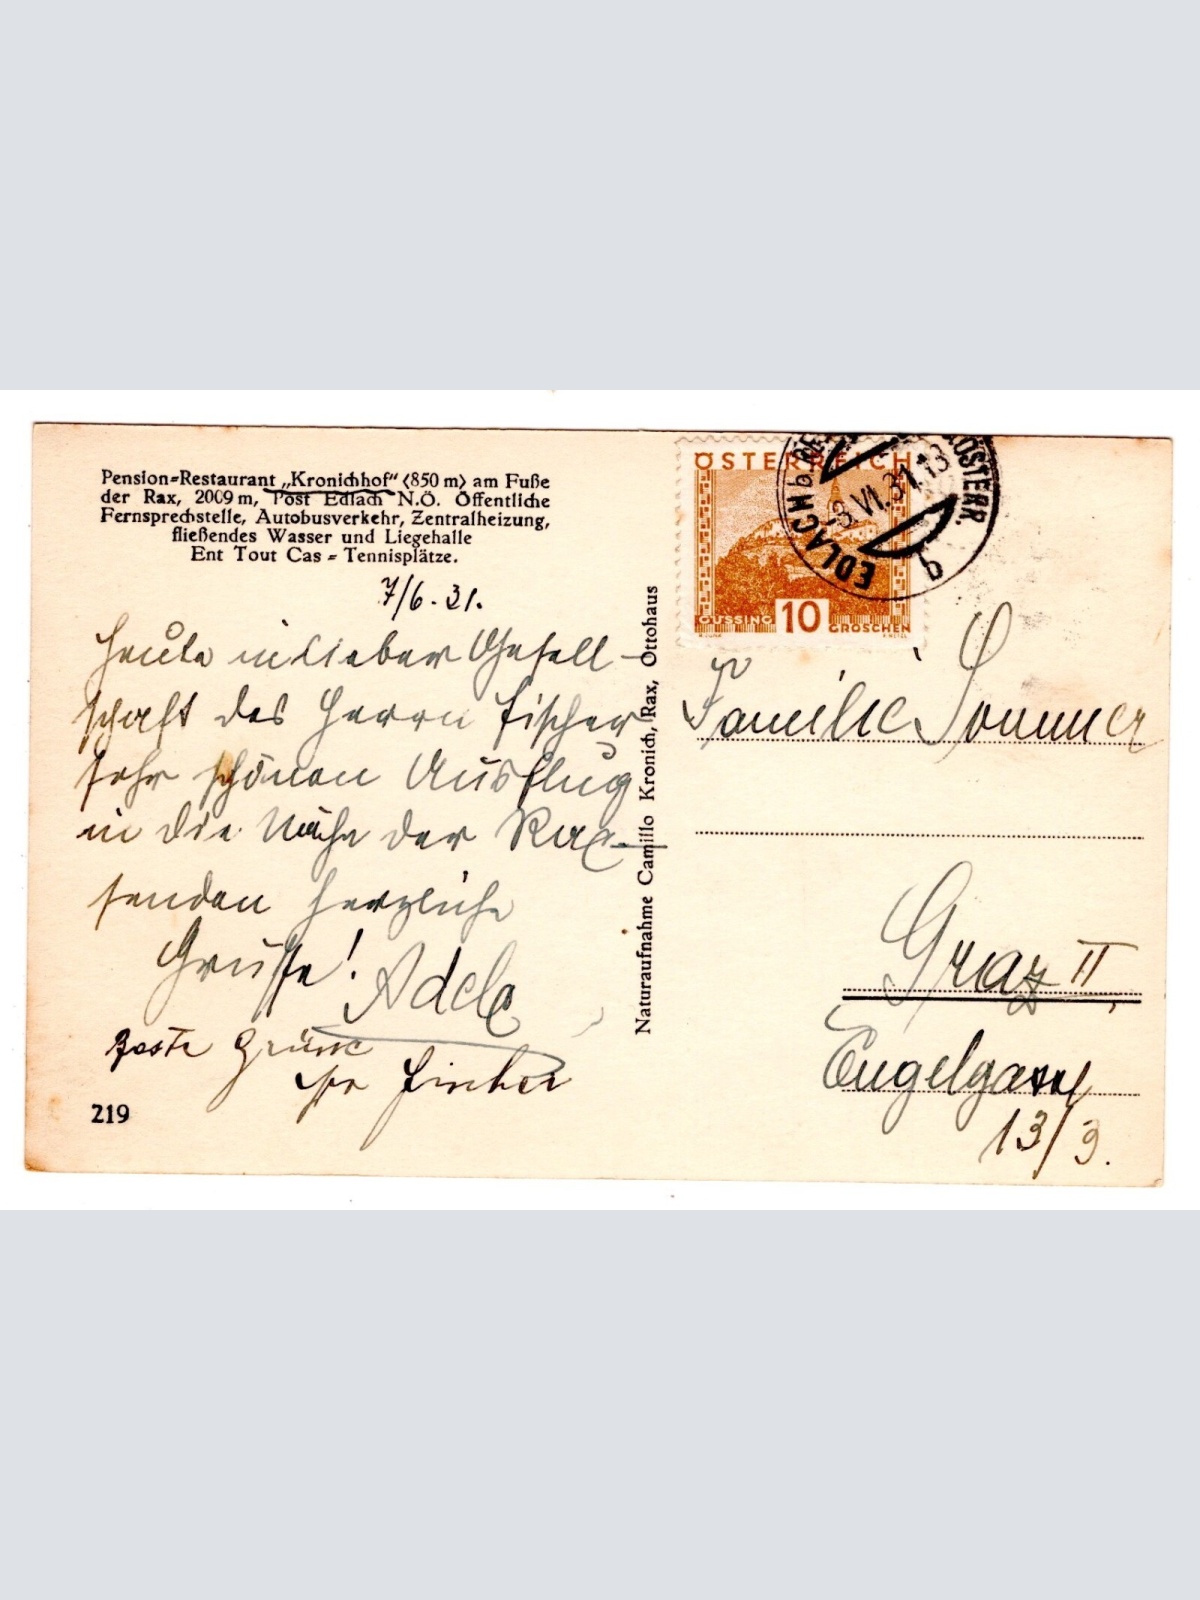 Pension-Restaurant „Kronichhof" (850 m) am Fuße
der Rax, 2009 m, Post Edlach N.Ö. Öffentliche
Fernsprechstelle, Autobusverkehr, Zentralheizung,
fließendes Wasser und Liegehalle
Ent Tout Cas - Tennisplätze.
7/6. 31.
Heute in lieber Gesell-
schaft des Herrn Fischer
sehr schönen Ausflug
in die Nähe der Rax.
senden herzliche
Grüsse! Adele
Beste Grüsse
Fischer
219
Naturaufnahme Camillo Kronich, Rax, Ottohaus
ÖSTERREICH
GÜSSING 10 GROSCHEN
EDLACH b.
-8.VI.31.13
ÖSTERR.
b
Familie Sommer
Graz II,
Engelgasse
13/3.